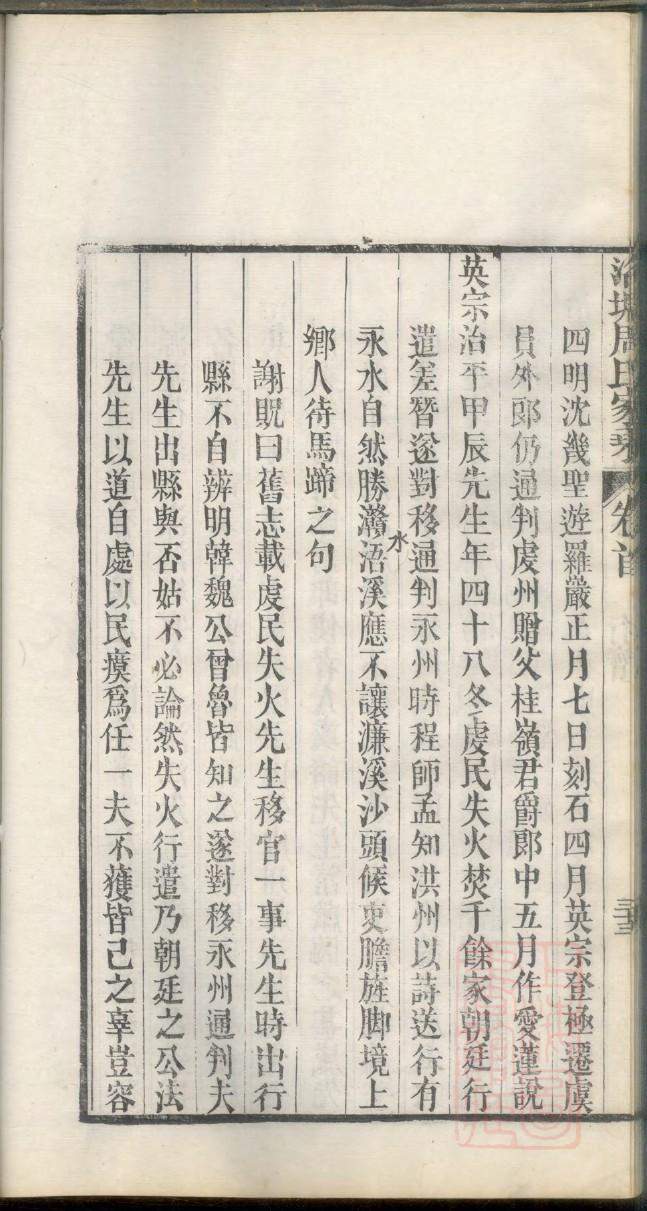 洛塘周氏家乘 卷首 三十三
四明沈幾聖遊羅嚴正月七日刻石四月英宗登極遷虞
員外郞仍通判虔州贈父桂嶺君爵郞中五月作愛蓮說
英宗治平甲辰先生年四十八冬虔民失火焚千餘家朝廷行
遣差暫遂對移通判永州時程師孟知洪州以詩送行有
永水自然勝灨浯溪應不讓濂溪沙頭候吏膽旌脚境上
水
鄕人待馬蹄之句
謝貺曰舊志載虔民失火先生移官一事先生時出行
縣不自辨明韓魏公曾魯皆知之遂對移永州通判夫
先生出縣與否姑不必論然失火行遣乃朝廷之公法
先生以道自處以民瘼爲任一夫不獲皆己之辜豈容